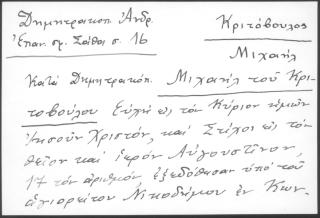 Δημητρακοπ. Ἀνδρ.
Ἐπαν. σφ. Σάθα σ. 16
Κριτόβουλος
Μιχαήλ
Κατὰ Δημητρακοπ. Μιχαὴλ τοῦ Κρι-
τοβούλου Εὐχὴ εἰς τὸν Κύριον ἡμῶν
Ἰησοῦν Χριστόν, καὶ Στίχοι εἰς τὸν
θεῖον καὶ ἱερὸν Αὐγουστῖνον,
17 τὸν ἀριθμόν, ἐξεδόθησαν ὑπὸ τοῦ
ἁγιορείτου Νικοδήμου ἐν Κων-